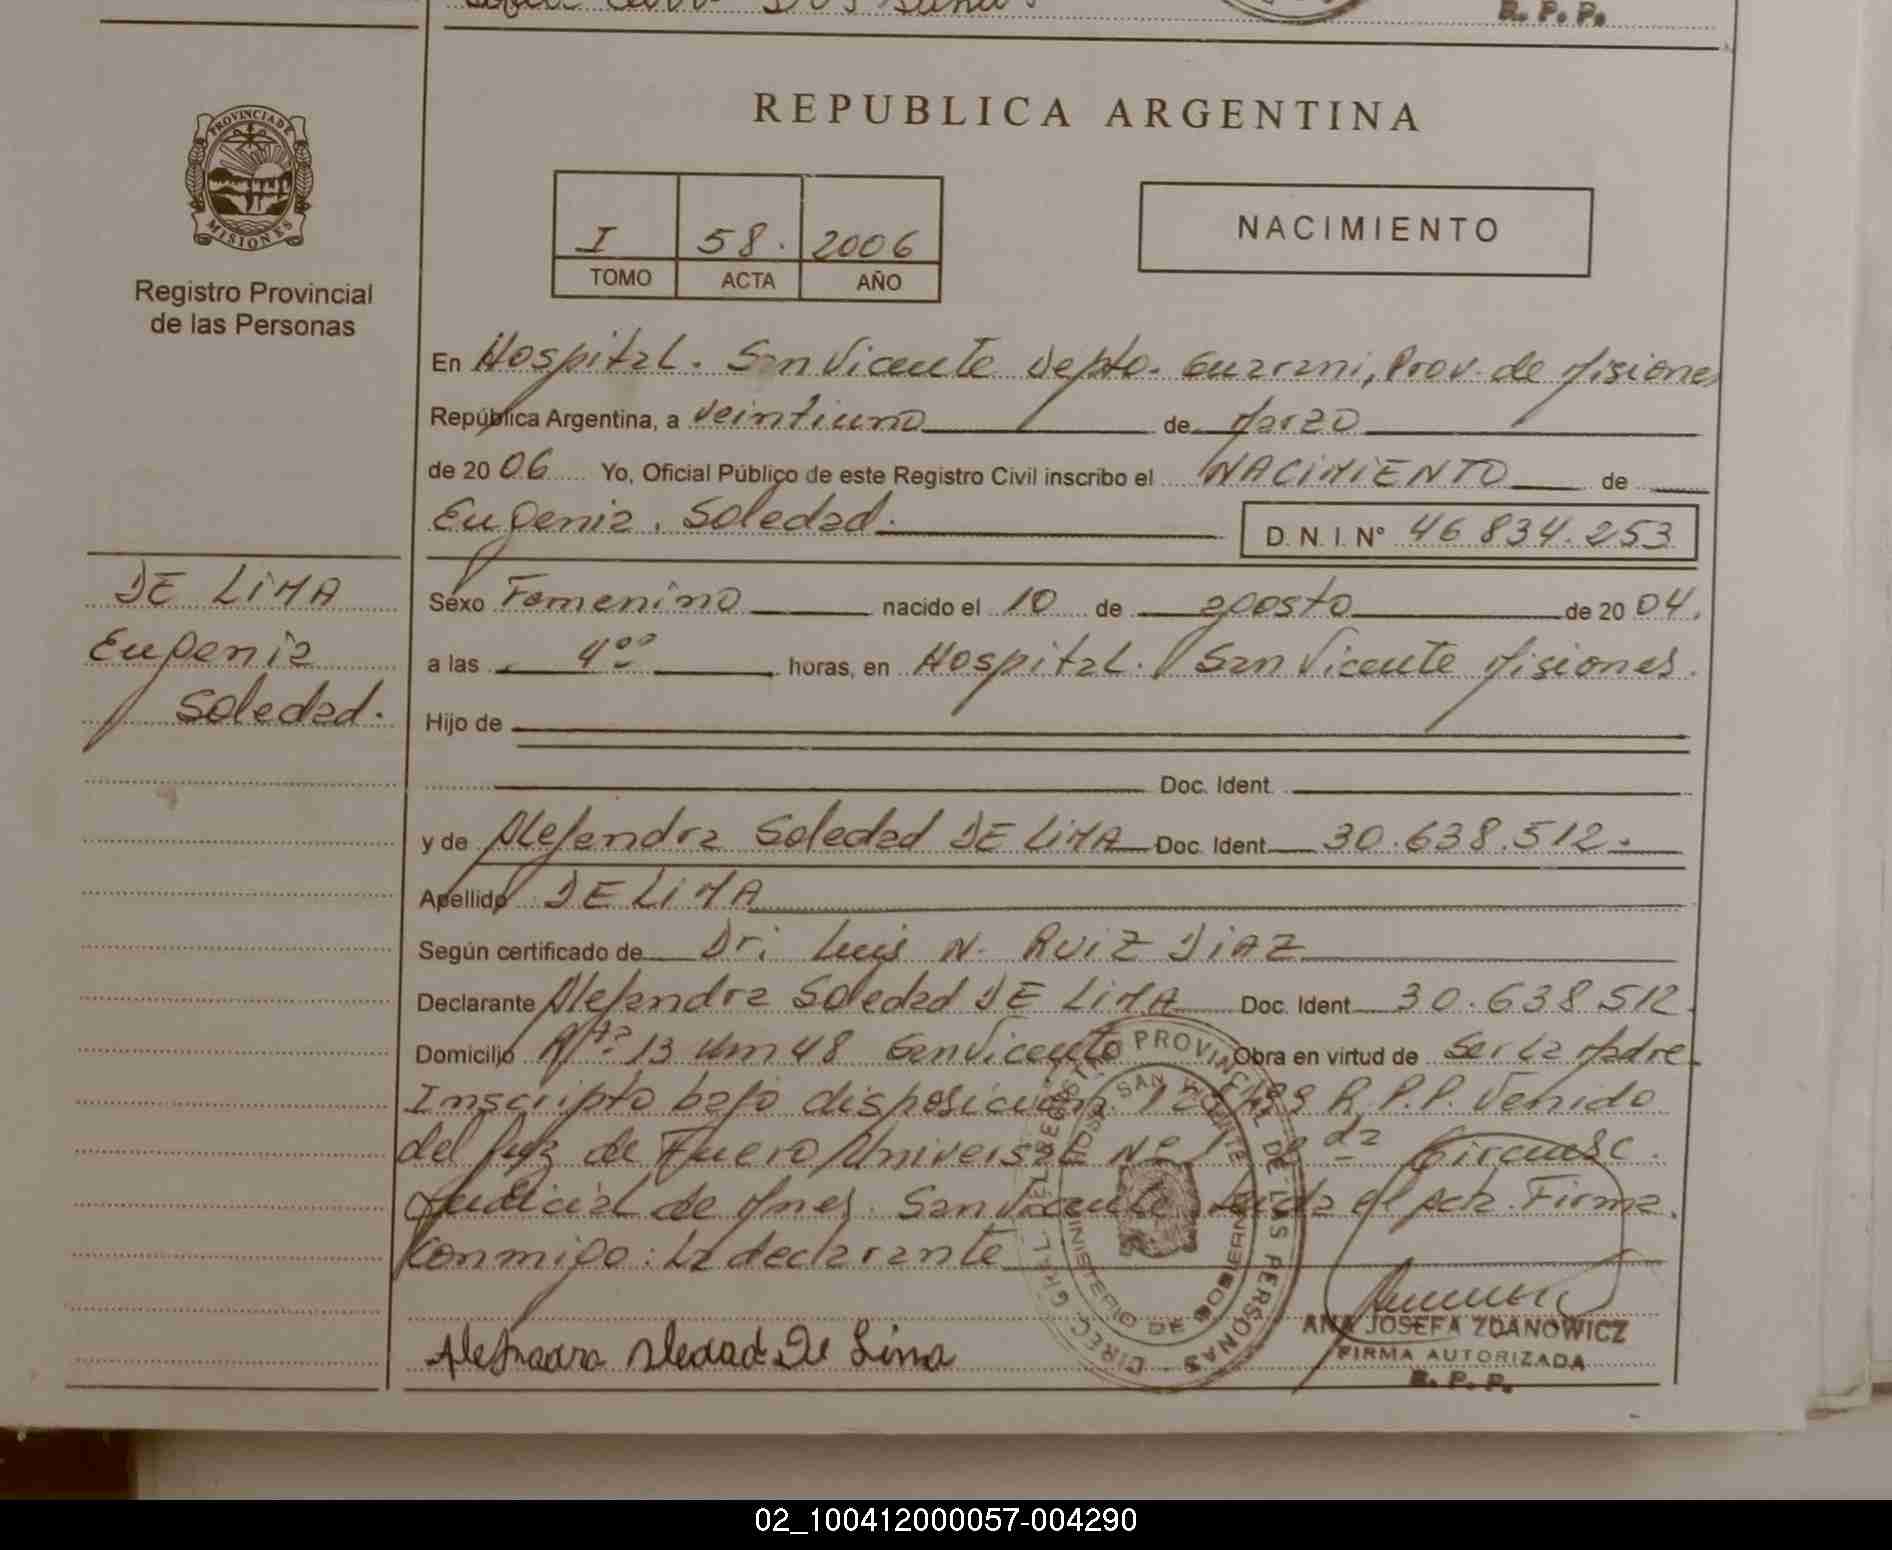 R. P. P.
REPUBLICA ARGENTINA
PROVINCIA DE
MISIONES
Registro Provincial
de las Personas
I 58. 2006
TOMO ACTA AÑO
NACIMIENTO
En Hospital. San Vicente Depto. Guarani, Prov. de Misiones
República Argentina, a veintiuno de Marzo
de 2006 Yo, Oficial Público de este Registro Civil inscribo el NACIMIENTO de
Eugenia. Soledad. D.N.I. N° 46.834.253
DE LIMA
Eugenia
Soledad.
Sexo Femenino nacido el 10 de agosto de 2004.
a las 4°° horas, en Hospital. San Vicente Misiones.
Hijo de
Doc. Ident.
y de Alejandra Soledad DE LIMA Doc. Ident. 30.638.512.
Apellido DE LIMA
Según certificado de Dr: Luis N. RUIZ DIAZ
Declarante Alejandra Soledad DE LIMA Doc. Ident. 30.638 512
Domicilio Rta 13 Km 48 San Vicente Obra en virtud de Ser La Madre
Inscripto bajo disposición R.P.P. Venido
del Juz de Fuero Universal Nº 1 2da Circunsc.
Judicial de Mnes. San Vicente Leida el Acta. Firma.
Conmigo: La declarante
Alejandra Soledad De Lima
DIREC. GRAL. DEL REGISTRO PROVINCIAL DE LAS PERSONAS
MINISTERIO DE GOBIERNO
HOSP. SAN VICENTE
ANA JOSEFA ZDANOWICZ
FIRMA AUTORIZADA
R. P. P.
02_100412000057-004290